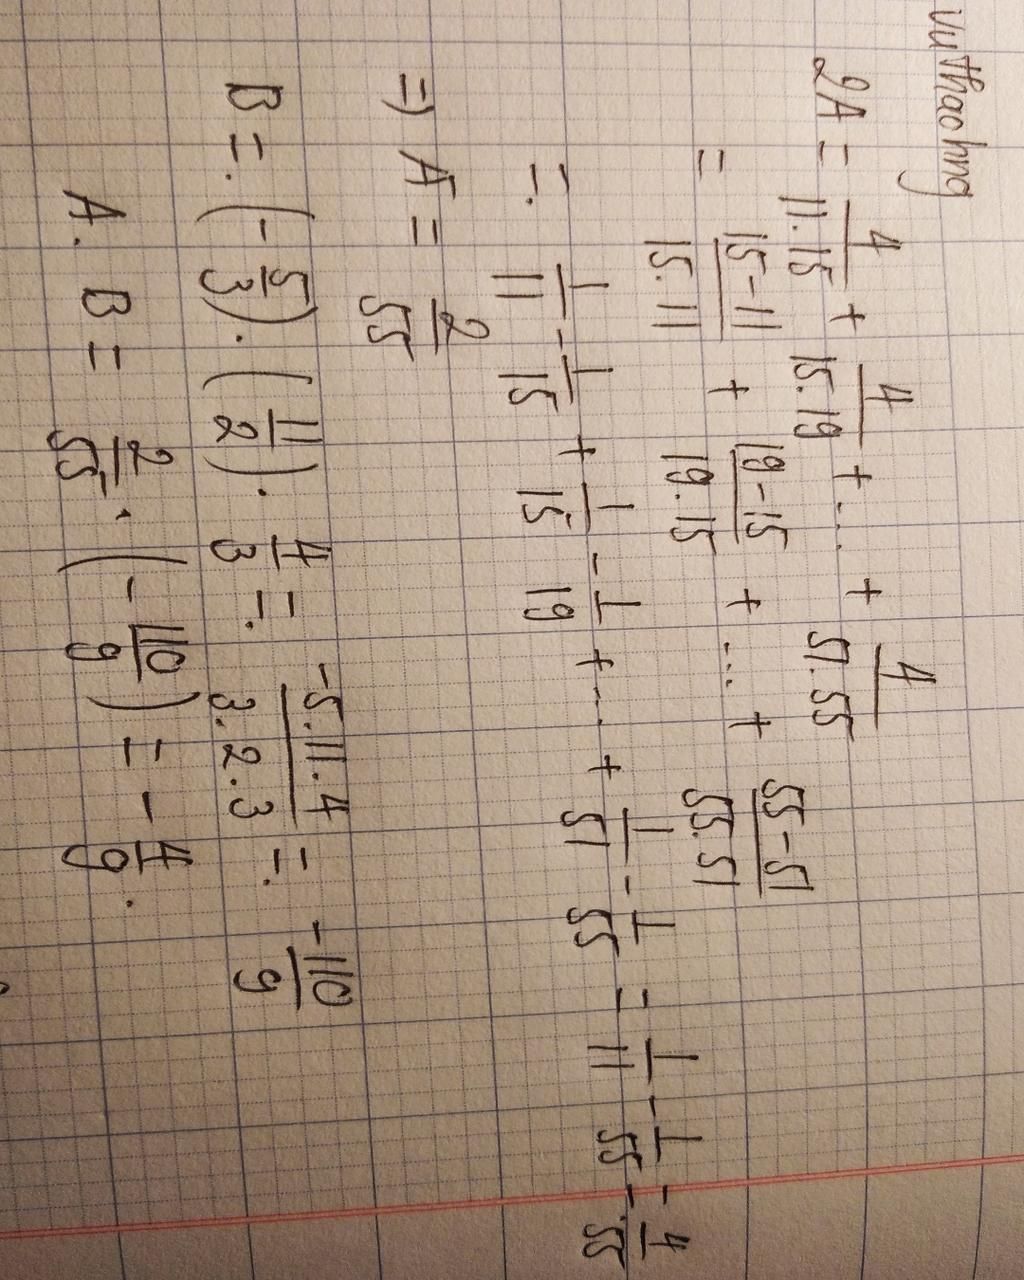 vuthaohng
2A = 4/11.15 + 4/15.19 + ... + 4/51.55
= 15-11/15.11 + 19-15/19.15 + ... + 55-51/55.51
= 1/11 - 1/15 + 1/15 - 1/19 + ... + 1/51 - 1/55 = 1/11 - 1/55 = 4/55
=> A = 2/55
B = (-5/3) . (11/2) . 4/3 = -5.11.4/3.2.3 = -110/9
A . B = 2/55 . (-110/9) = -4/9 .